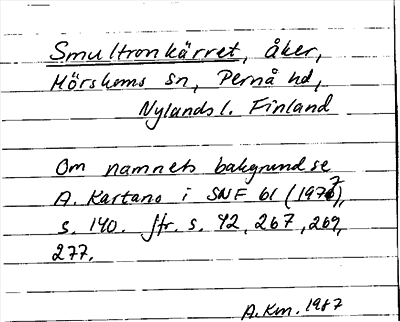 Smultronkärret, åker,
Mörskoms sn, Pernå hd,
Nylands l. Finland
Om namnets bakgrund se
A. Kartano i SNF 61 (1977),
s. 140. Jfr. s. 42, 267, 269,
277.
A.Km. 1987